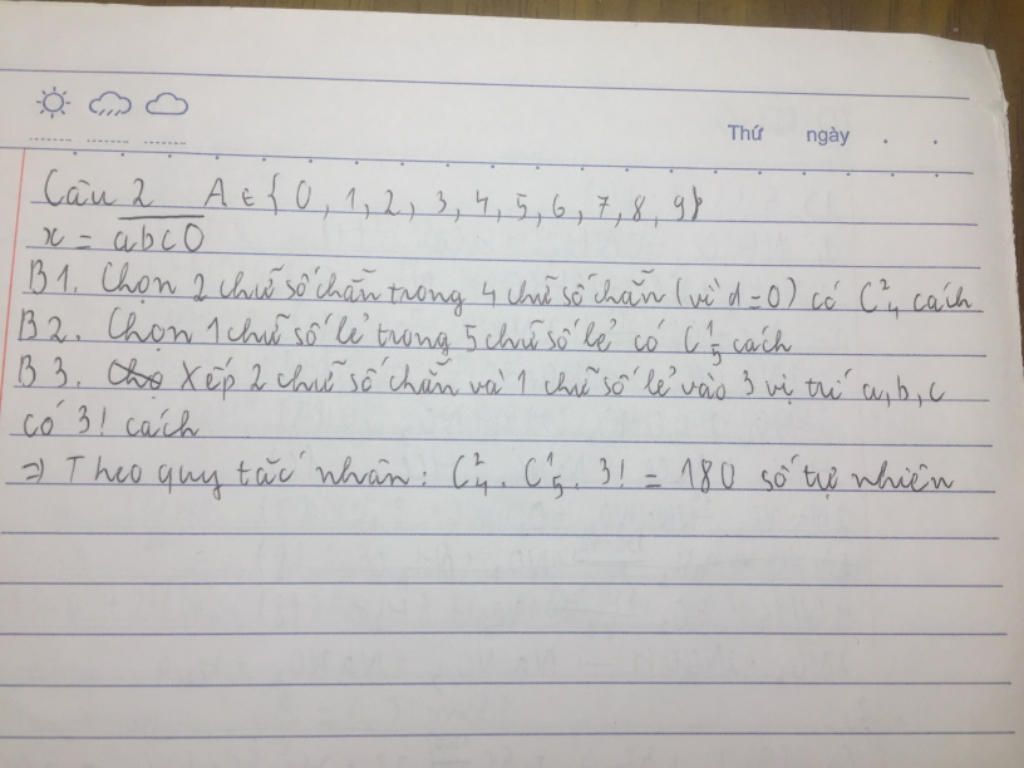 Thứ ngày . .
Câu 2 A ∈ {0, 1, 2, 3, 4, 5, 6, 7, 8, 9}
x = abc0
B1. Chọn 2 chữ số chẵn trong 4 chữ số chẵn (vì d=0) có C²₄ cách
B2. Chọn 1 chữ số lẻ trong 5 chữ số lẻ có C¹₅ cách
B3. Xếp 2 chữ số chẵn và 1 chữ số lẻ vào 3 vị trí a, b, c
có 3! cách
⇒ Theo quy tắc nhân: C²₄. C¹₅. 3! = 180 số tự nhiên